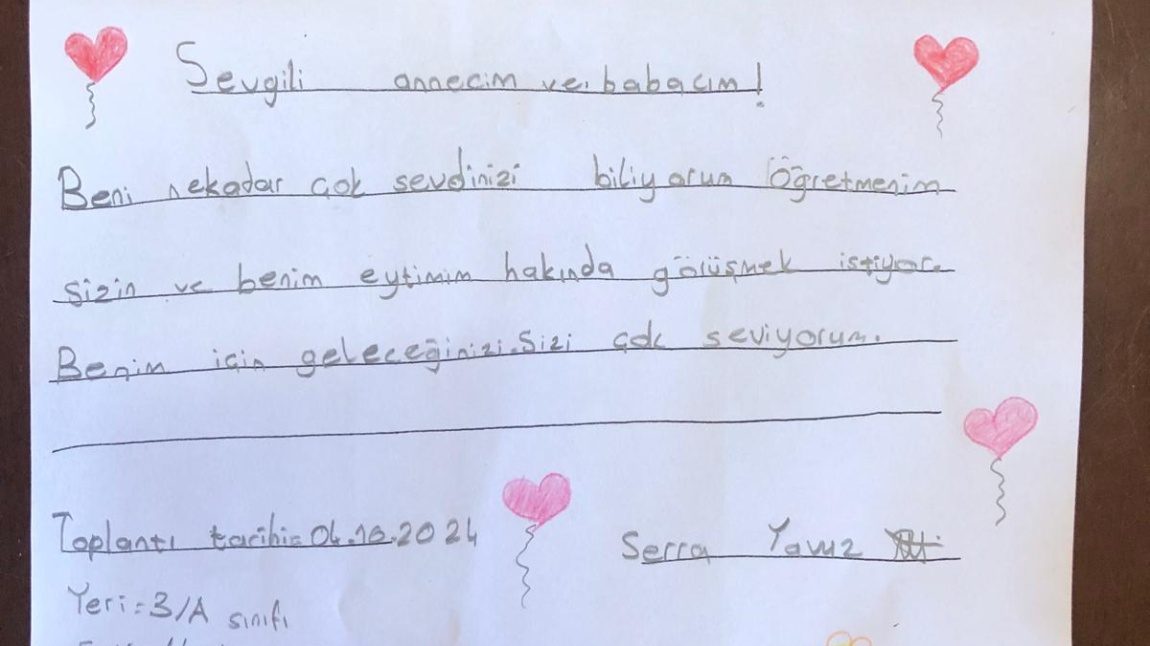 Sevgili annecim ve babacım!
Beni nekadar çok sevdinizi biliyorum Öğretmenim
sizin ve benim eytimim hakında görüşmek istiyor.
Benim için geleceğinizi.Sizi çok seviyorum.
Toplantı tarihi=04.10.2024
Serra Yavuz
Yeri=3/A sınıfı